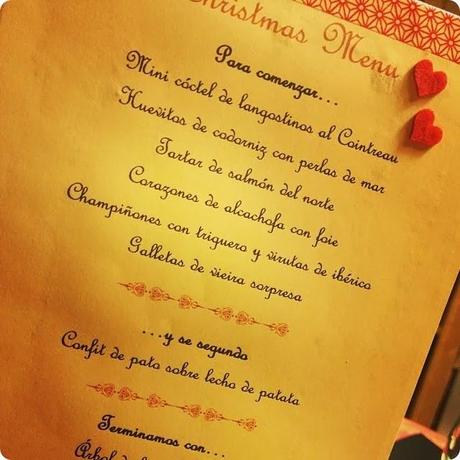 Christmas Menu
Para comenzar...
Mini cóctel de langostinos al Cointreau
Huevitos de codorniz con perlas de mar
Tartar de salmón del norte
Corazones de alcachofa con foie
Champiñones con triguero y virutas de ibérico
Galletas de vieira sorpresa
...y se segundo
Confit de pato sobre lecho de patata
Terminamos con...
Árbol de